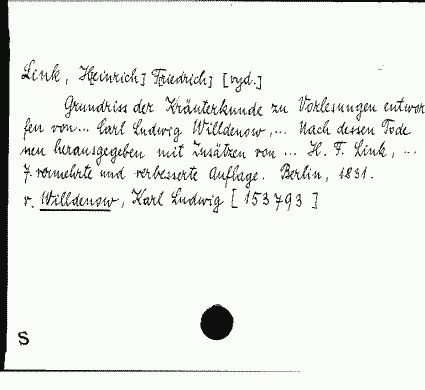 Link, H[einrich] F[riedrich] [vyd.]
Grundriss der Kräuterkunde zu Vorlesungen entwor
fen von... Carl Ludwig Willdenow,... Nach dessen Tode
neu herausgegeben mit Zusätzen von ... H. F. Link, ...
7. vermehrte und verbesserte Auflage. Berlin, 1831.
v. Willdenow, Karl Ludwig [153793]
S